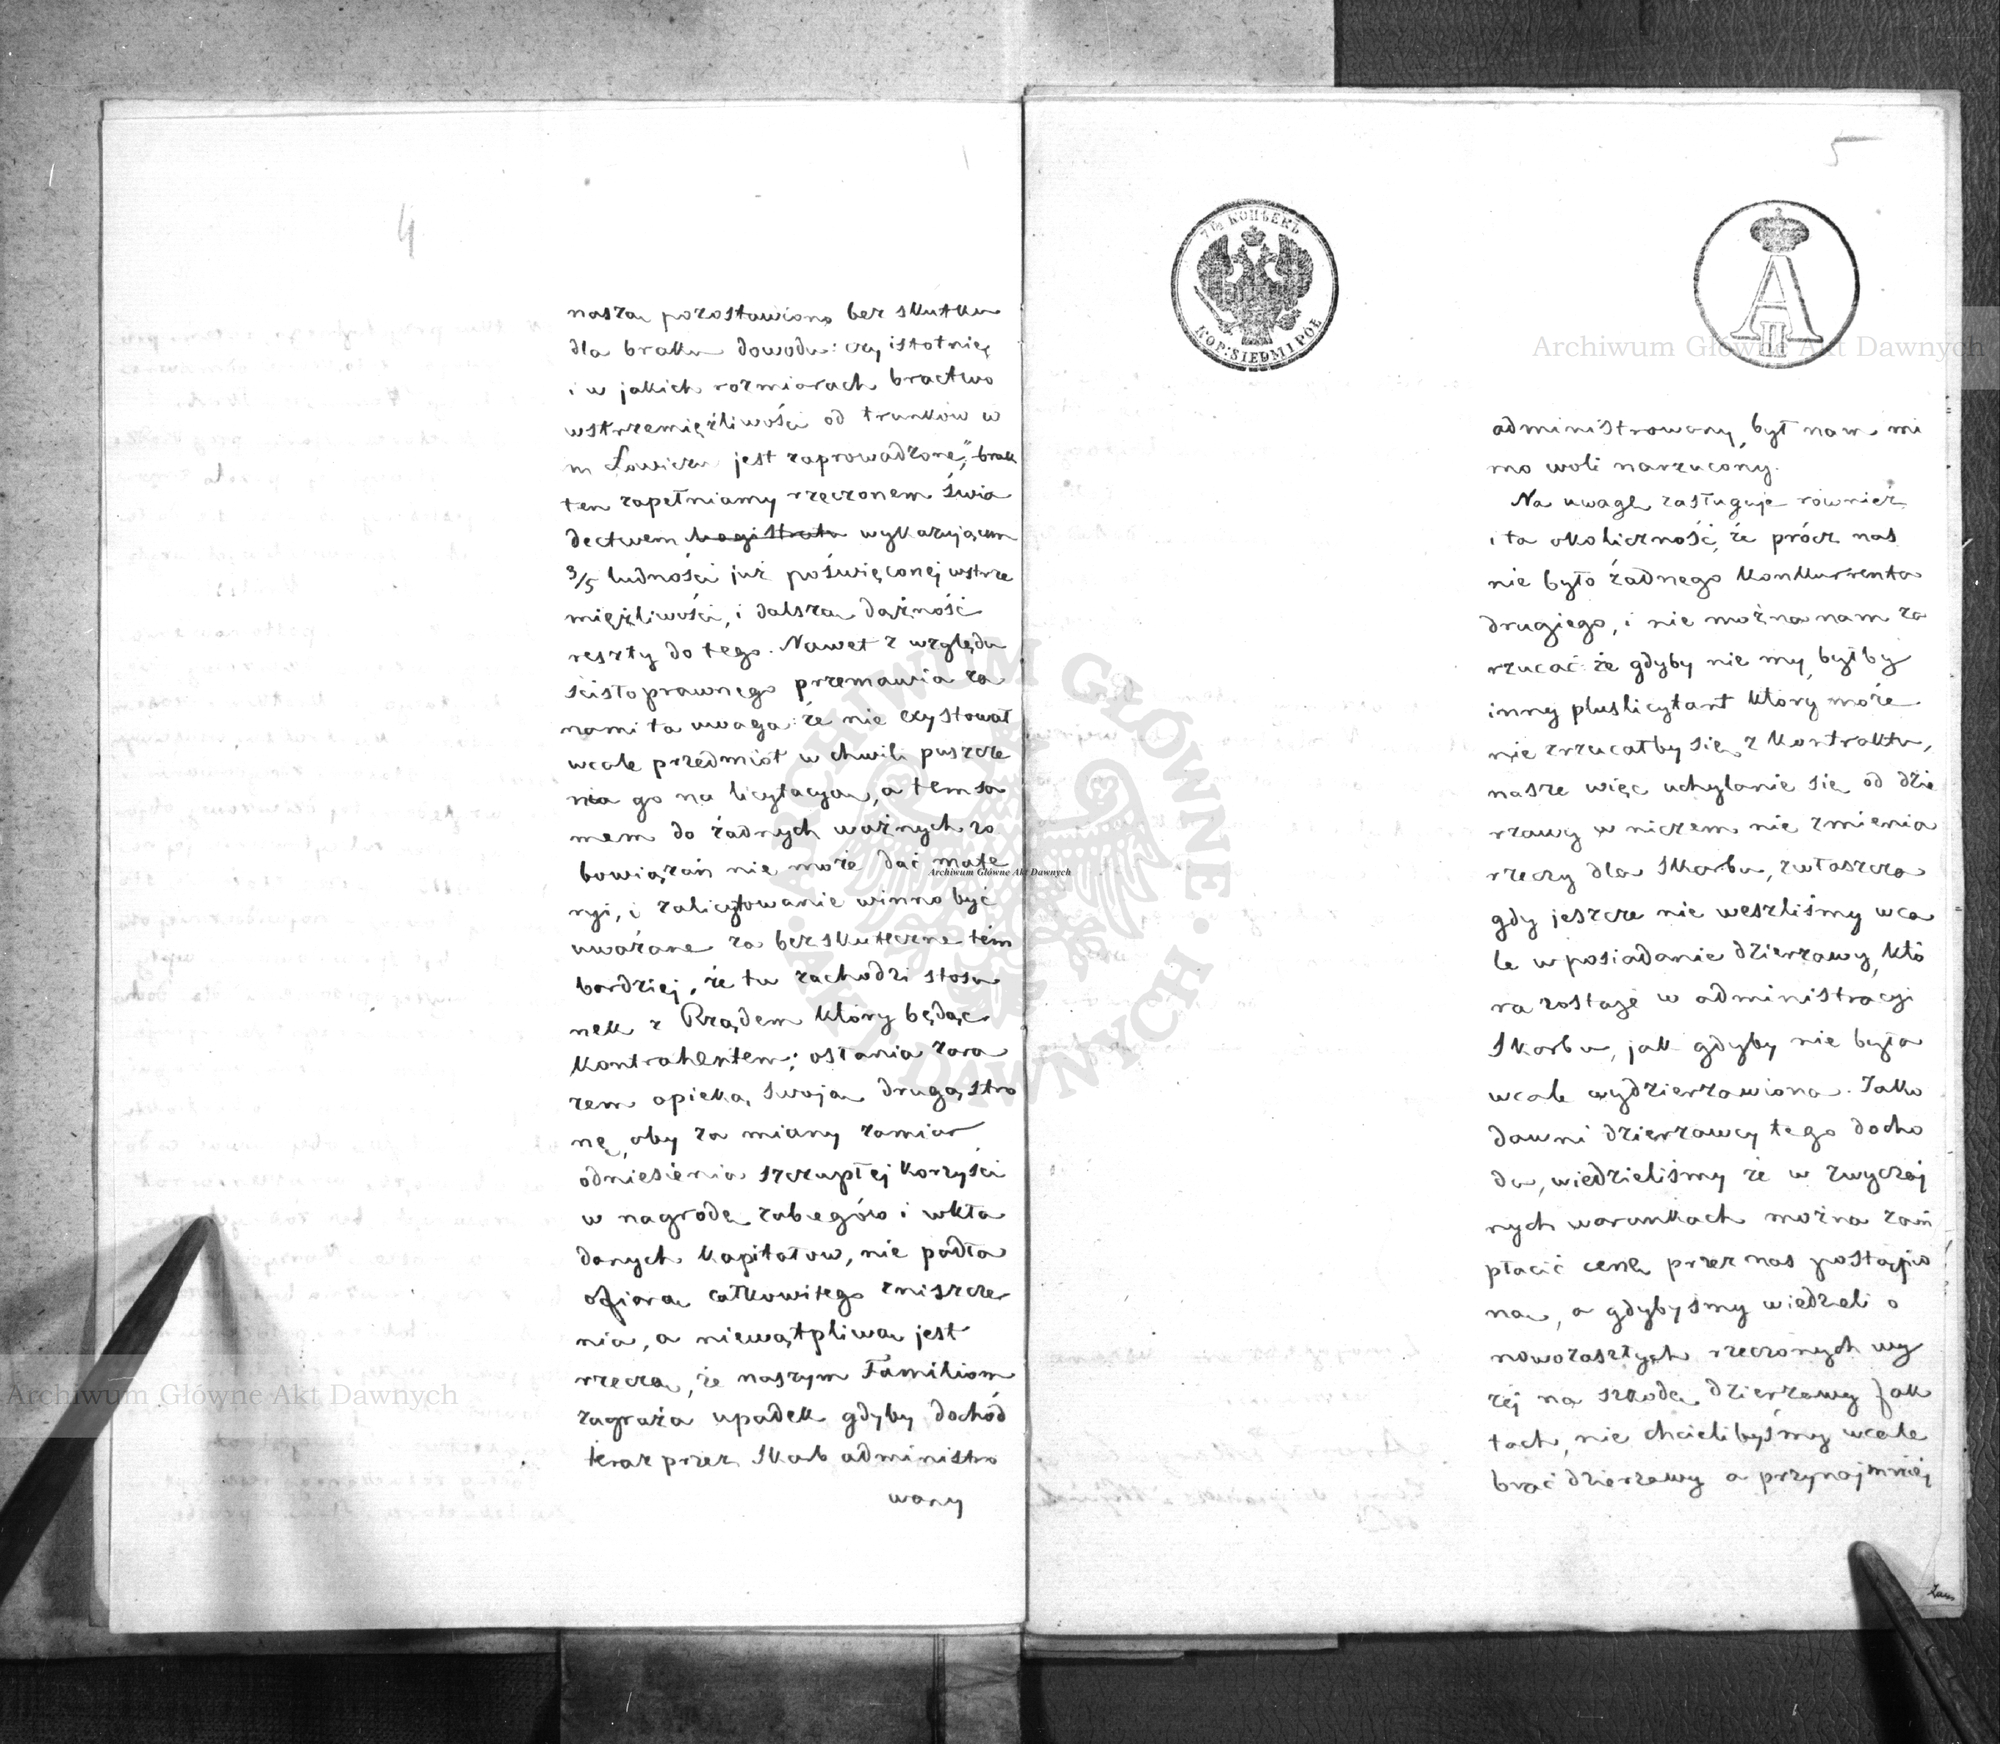 4
nasza pozostawiono bez skutku
dla braku dowodu: czy istotnię
i w jakich rozmiarach bractwo
wstrzemięźliwości od trunków w
m Łowiczu jest zaprowadzone," brak
ten zapełniamy rzeczonem świa
dectwem Magistratu wykazującem
3/5 ludności już poświęconej wstrze
mięźliwości, i dalsza dążność
reszty do tego. Nawet z względu
ściśłoprawnego przemawia za
nami ta uwaga: że nie exystował
wcale przedmiot w chwili puszcze
nia go na licytacyą, a temsa
mem do żadnych ważnych zo
bowiązań nie może dać mate
ryi, i zalicytowanie winno być
uważane za bezskuteczne tém
bardziej, że tu zachodzi stosu
nek z Rządem który będąc
kontrahentem; osłania zara
zem opieką swoją drugą stro
nę, aby za miany zamiar
odniesienia szczupłej korzyści
w nagrodę zabiegów i wkła
danych kapitałów, nie padła
ofiarą całkowitego zniszcze
nia, a niewątpliwą jest
rzeczą, że naszym Familiom
zagraża upadek gdyby dochód
teraz przez Skarb administro
wany
5
7 1/2 КОПѢЕКЪ
KOP: SIEDM I PÓŁ
A II
administrowany, był nam mi
mo woli narzucóny.
Na uwagę zasługuje również
i ta okoliczność, że prócz nas
nie było żadnego konkurrenta
drugiego, i nie można nam za
rzucać: że gdyby nie my, byłby
inny pluslicytant który może
nie zrzucałby się z kontraktu,
nasze więc uchylanie się od dzie
rzawy w niczem nie zmienia
rzeczy dla Skarbu, zwłaszcza
gdy jeszcze nie weszliśmy wca
le w posiadanie dzierzawy, któ
ra zostaje w administracyi
Skarbu, jak gdyby nie była
wcale wydzierzawiona. Jako
dawni dzierzawcy tego docho
du, wiedzieliśmy że w zwyczaj
nych warunkach można zań
płacić cenę przez nas postąpio
ną, a gdybyśmy wiedzeli o
nowozaszłych rzeczonych wy
żej na szkodę dzierzawy fak
tach, nie chcielibyśmy wcale
brać dzierzawy a przynajmniej
Archiwum Główne Akt Dawnych
Archiwum Główne Akt Dawnych
Archiwum Główne Akt Dawnych
ARCHIWUM GŁÓWNE AKT DAWNYCH